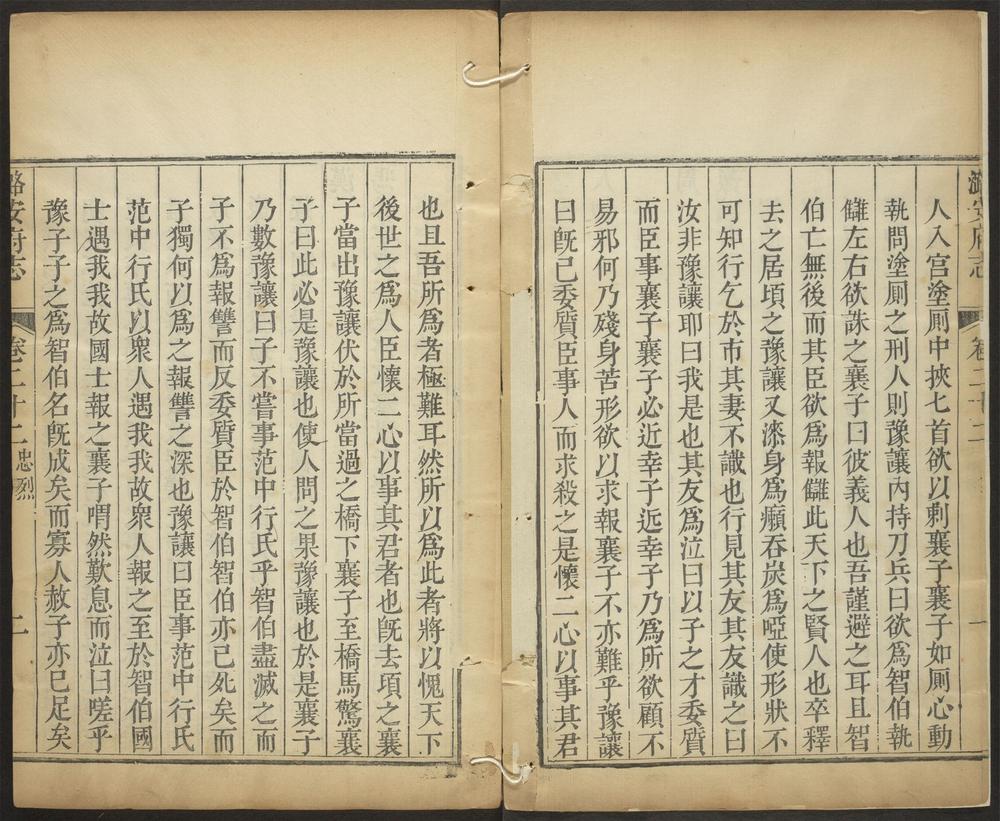 潞安府志 卷二十二 一
人入宮塗厠中挾匕首欲以刺襄子襄子如厠心動
執問塗厠之刑人則豫讓內持刀兵曰欲爲智伯執
讎左右欲誅之襄子曰彼義人也吾謹避之耳且智
伯亡無後而其臣欲爲報讎此天下之賢人也卒釋
去之居頃之豫讓又漆身爲癩吞炭爲啞使形狀不
可知行乞於市其妻不識也行見其友其友識之曰
汝非豫讓耶曰我是也其友爲泣曰以子之才委質
而臣事襄子襄子必近幸子近幸子乃爲所欲顧不
易邪何乃殘身苦形欲以求報襄子不亦難乎豫讓
曰旣已委質臣事人而求殺之是懷二心以事其君
也且吾所爲者極難耳然所以爲此者將以愧天下
後世之爲人臣懷二心以事其君者也旣去頃之襄
子當出豫讓伏於所當過之橋下襄子至橋馬驚襄
子曰此必是豫讓也使人問之果豫讓也於是襄子
乃數豫讓曰子不嘗事范中行氏乎智伯盡滅之而
子不爲報讐而反委質臣於智伯智伯亦已死矣而
子獨何以爲之報讐之深也豫讓曰臣事范中行氏
范中行氏以衆人遇我我故衆人報之至於智伯國
士遇我我故國士報之襄子喟然歎息而泣曰嗟乎
豫子子之爲智伯名旣成矣而寡人赦子亦已足矣
潞安府志 卷二十二 忠烈 二